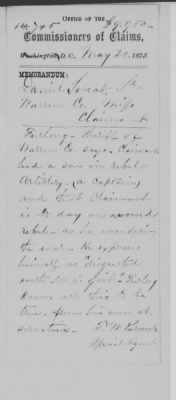 14,745 $9,950—
OFFICE OF THE
Commissioners of Claims,
Washington, D.C., May 20, 1875
MEMORANDUM:
Daniel Sr.
Warren Co. Miss
Claimant
Furlong - Sheriff of
Warren Co. says - Claimant
had a son in rebel
Artillery, (a captain)
and that Claimant
is to day an avowed
rebel - as he was during
the war. He expresses
himself as "disgusted
with " Furlong
knows all this to be
true - from his own ob-
servation.
Special Agent